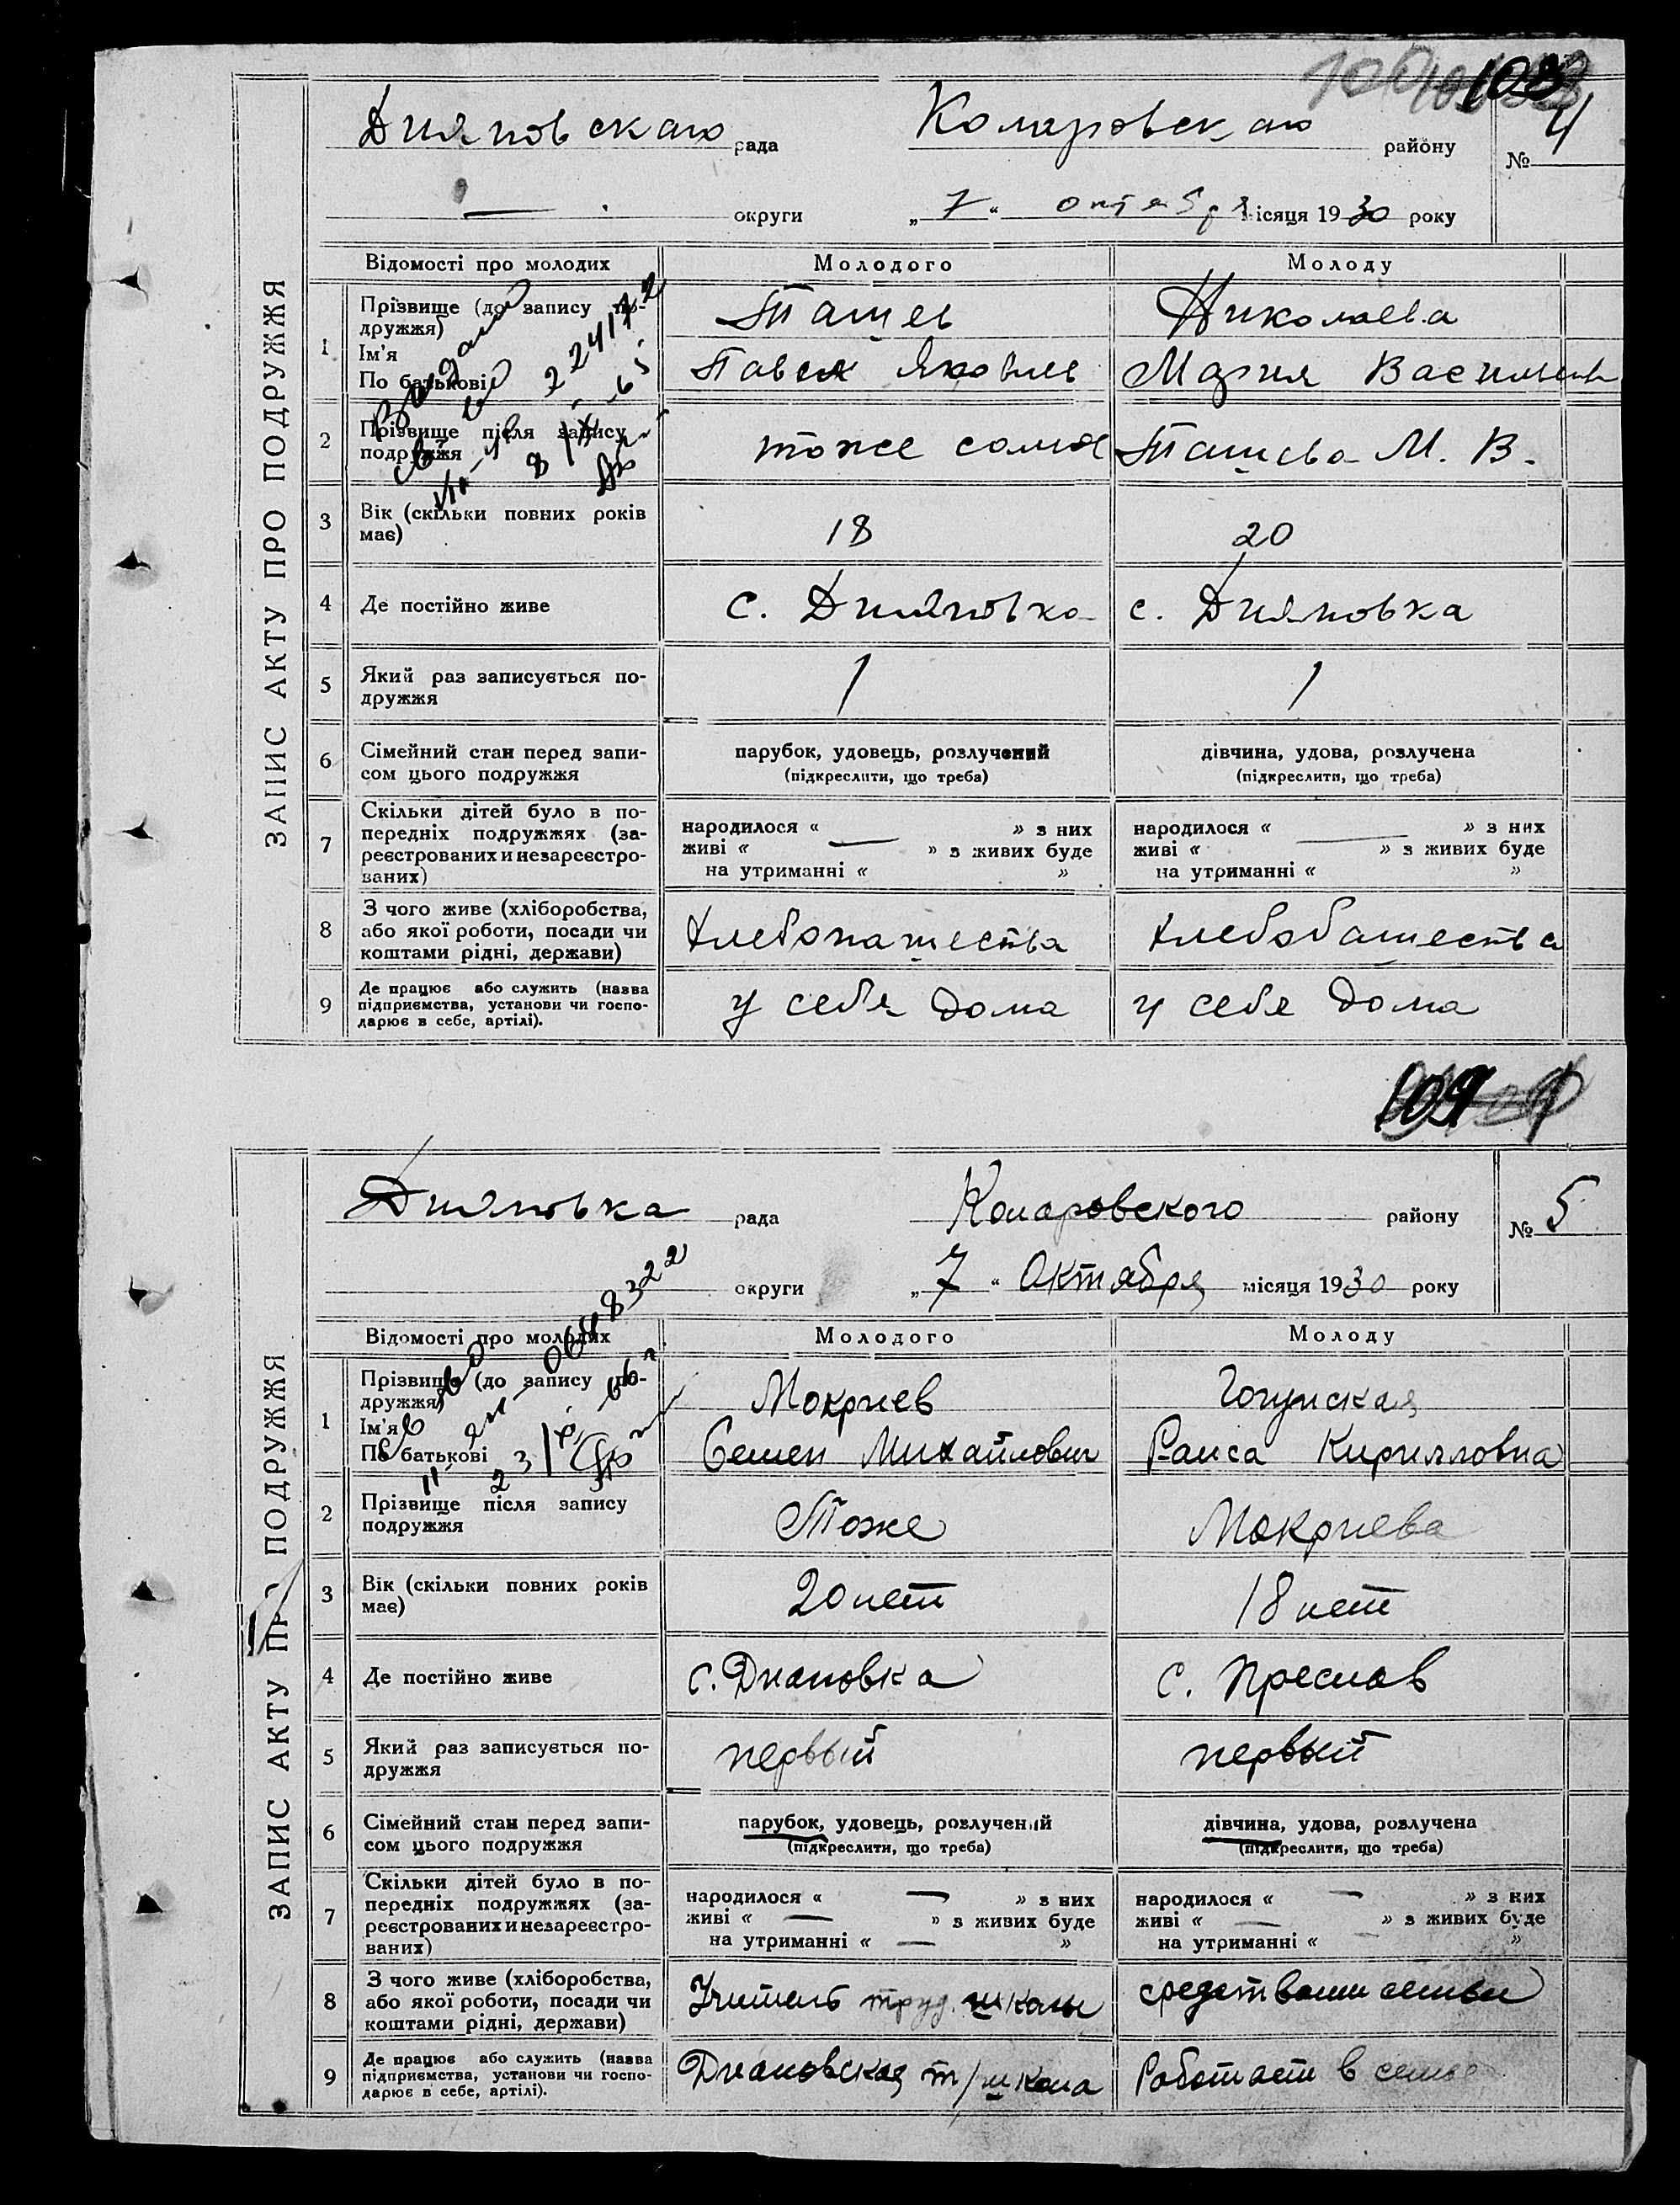 108
Дияновскаго рада Комаровскаго району № 4
— округи „ 7 “ октября місяця 1930 року
ЗАПИС АКТУ ПРО ПОДРУЖЖЯ
Відомості про молодих Молодого Молоду
1 Прізвище (до запису по-
дружжя)
Ім'я
По батькові
Ташев Николаева
Павел Яковлев Мария Васильев
2 Прізвище після запису
подружжя
тоже самое Ташева М. В.
3 Вік (скільки повних років
має)
18 20
4 Де постійно живе с. Дияновка с. Дияновка
5 Який раз записується по-
дружжя
1 1
6 Сімейний стан перед запи-
сом цього подружжя
парубок, удовець, розлучений дівчина, удова, розлучена
(підкреслити, що треба) (підкреслити, що треба)
7 Скільки дітей було в по-
передніх подружжях (за-
реєстрованих и незареєстро-
ваних)
народилося « — » з них народилося « — » з них
живі « » з живих буде живі « » з живих буде
на утриманні « » на утриманні « »
8 З чого живе (хліборобства,
або якої роботи, посади чи
коштами рідні, держави)
хлебопашества хлебобашества
9 Де працює або служить (назва
підприємства, установи чи госпо-
дарює в себе, артілі).
у себя дома у себя дома
109
Дияновка рада Комаровского району № 5
округи „ 7 “ Октября місяця 1930 року
ЗАПИС АКТУ ПРО ПОДРУЖЖЯ
Відомості про молодих Молодого Молоду
1 Прізвище (до запису по-
дружжя)
Ім'я
По батькові
Мокриев
Семен Михайлович Раиса Кирилловна
2 Прізвище після запису
подружжя
Тоже Мокриева
3 Вік (скільки повних років
має)
20 лет 18 лет
4 Де постійно живе с. Диановка с. Преслав
5 Який раз записується по-
дружжя
первый первый
6 Сімейний стан перед запи-
сом цього подружжя
парубок, удовець, розлучений дівчина, удова, розлучена
(підкреслити, що треба) (підкреслити, що треба)
7 Скільки дітей було в по-
передніх подружжях (за-
реєстрованих и незареєстро-
ваних)
народилося « — » з них народилося « — » з них
живі « — » з живих буде живі « — » з живих буде
на утриманні « — » на утриманні « — »
8 З чого живе (хліборобства,
або якої роботи, посади чи
коштами рідні, держави)
Учитель труд. школы средствами семьи
9 Де працює або служить (назва
підприємства, установи чи госпо-
дарює в себе, артілі).
Диановская т/школа Работает в семье